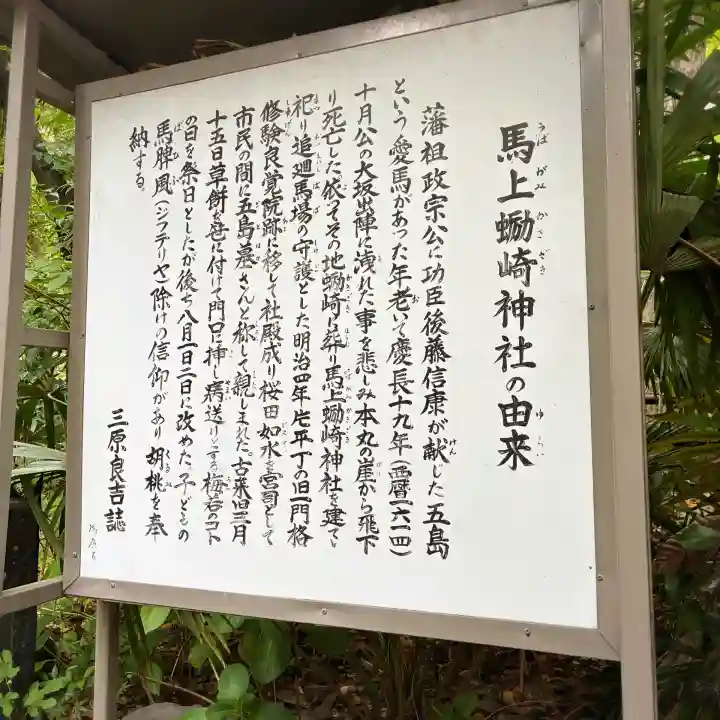 馬上蛎崎神社の由来
うばがみかきざき
ゆらい
藩祖政宗公に功臣後藤信康が献じた五島
という愛馬があった年老いて慶長十九年(西暦一六一四)
十月公の大坂出陣に洩れた事を悲しみ本丸の崖から飛下
り死亡した依てその地蛎崎に葬り馬上蛎崎神社を建て
祀り追廻馬場の守護とした明治四年片平丁の旧一門格
修験良覚院跡に移して社殿成り桜田如水を宮司として
市民の間に五島墓さんと称して親しまれた。古来旧三月
十五日草餅を苞に付けて門口に挿し病送りとする梅若のコト
の日を祭日としたが後ち八月一日二日に改めた 子どもの
馬脾風(ジフテリヤ)除けの信仰があり 胡桃を奉
納する
三原良吉誌